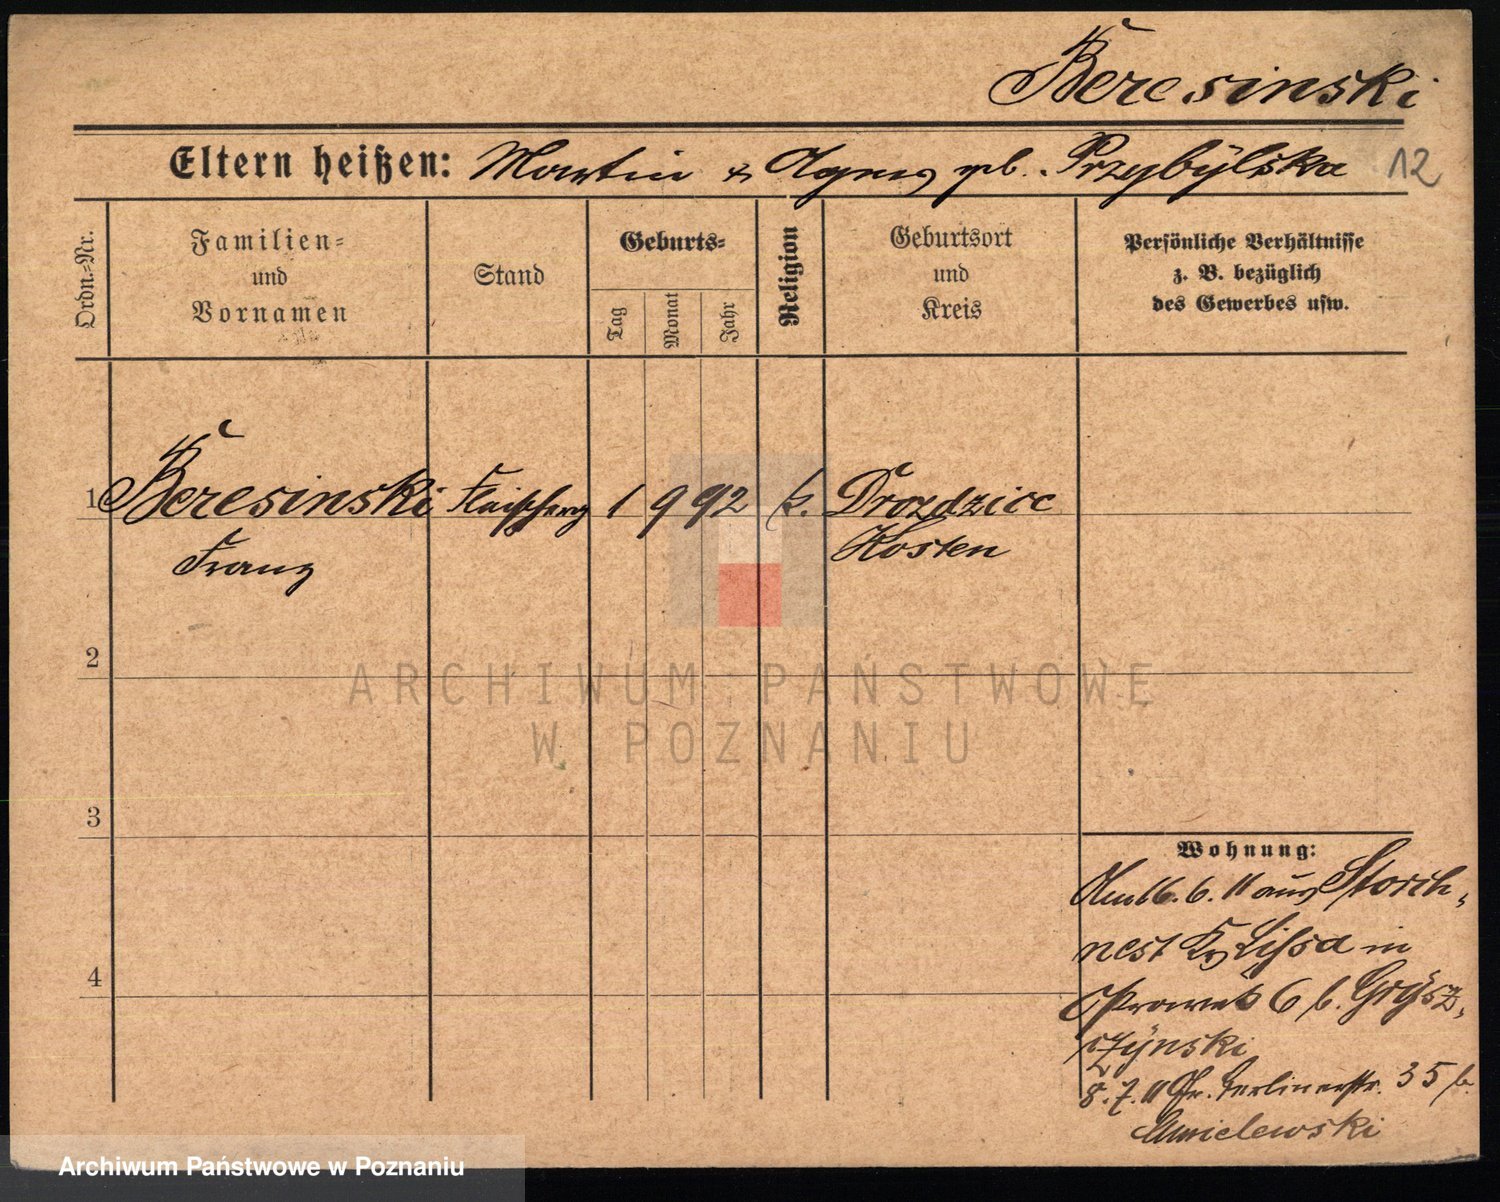 Beresinski
Eltern heißen: Martin & Agnes geb. Przybÿlska 12
Ordn.-Nr.
Familien-
und
Vornamen
Stand
Geburts-
Tag
Monat
Jahr
Religion
Geburtsort
und
Kreis
Persönliche Verhältnisse
z. B. bezüglich
des Gewerbes usw.
1 Beresinski Fleischerg 1 9 92 k. Drozdzice
Franz Kosten
2
3
4
Wohnung:
Am 16. 6. 11 aus Storch-
nest Kr Lissa in
6 b. Grÿsz-
czÿnski
8. 7. 11 Gr. Berlinerstr. 35 b.
Chmielewski
ARCHIWUM PAŃSTWOWE
W POZNANIU
Archiwum Państwowe w Poznaniu